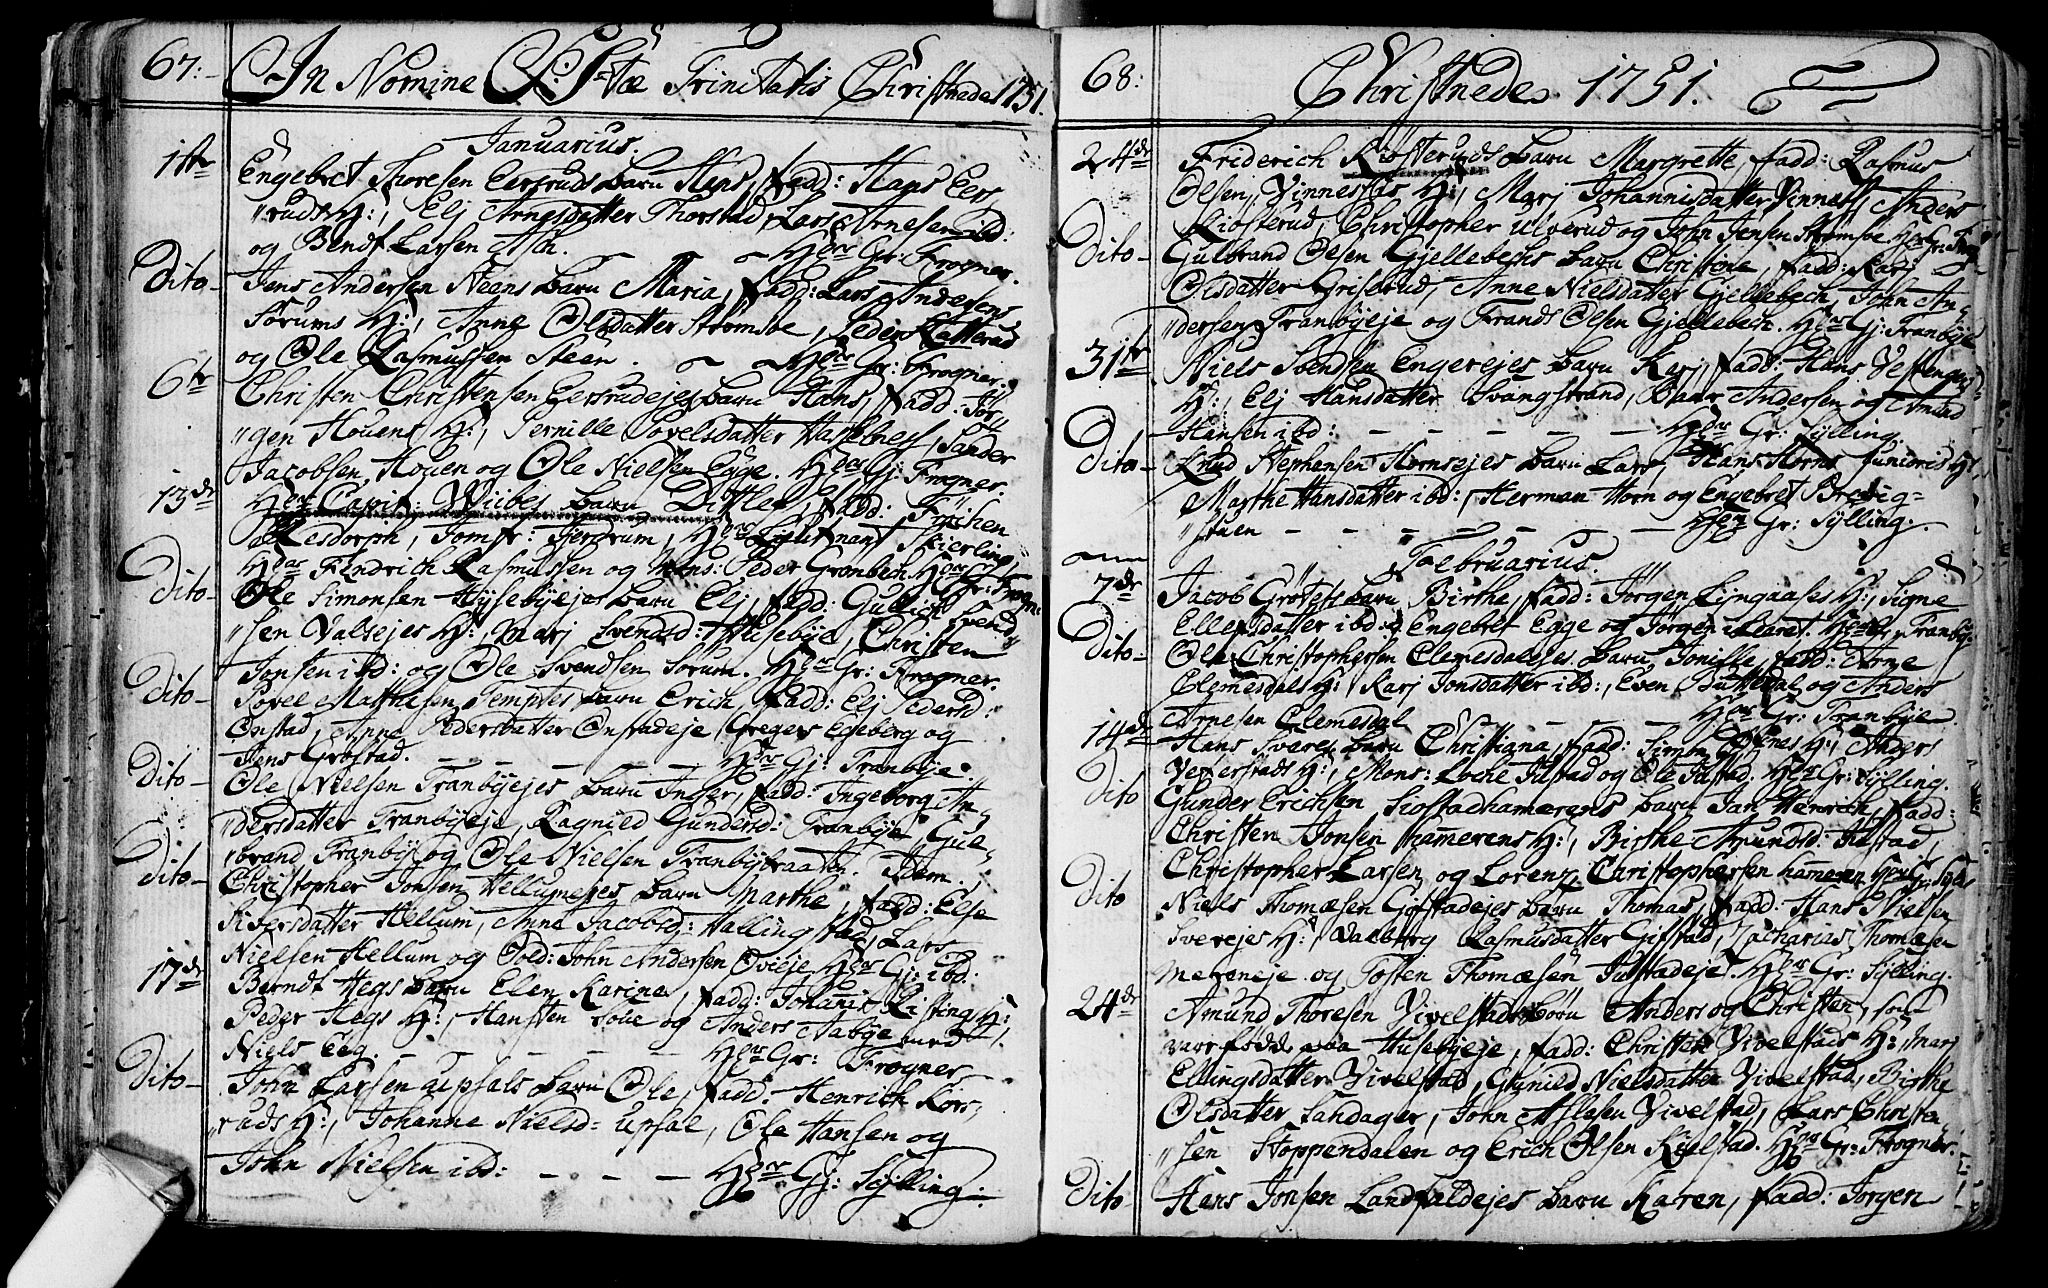 67.
In Nomine S: S:tæ Trinitatis Christnede 1751.
Januarius.
1ste Engebret Thoresen Eersruds barn Hens, fadd: Hans Eers-
"ruds H:, Elj Arnesdatter Thorstad, Lars Arnesen ibd:
og Bendt Larsen Ask. Hos Gr: Frogner.
Dito- Jens Andersen Neens barn Maria, fadd: Lars Andersens
Sørums H:, Anne Olsdatter Strømsøe, Peder Ketterud
og Ole Rasmussen Steen. Hos Gr: Frogner.
6te Christen Christensen Eersrudejes barn Hans, fadd: Jør-
"gen Houens H:, Pernille Povelsdatter Hasselness, Sander
Jacobsen Houen og Ole Nielsen Egge. Hos Gj: Frogner.
13de Hos Capit: Wiibes barn Ditlef, fadd: Frichen
Resdorph, Jomfr: Fierdrum, Hos Lieutnant Skierling,
Hos Fridrich Rasmussen og Mons: Peder Grønbech. Hos Gr: Frogn:
Dito- Ole Simonsen Hysebyejes barn Elj, fadd: Gullich Svend-
"sen Valsejes H:, Marj Svendsd: Husebye, Christen
Jonsen ibd: og Ole Svendsen Sørum. Hos Gr: Frogner.
Dito- Povel Mathisen Temptes barn Erich, fadd: Elj Pedersd:
Onstad, Anne Pedersdatter Onstadeje, Gregers Egeberg og
Jens Grøstad. - - - - - Hos Gj: Franbye.
Dito- Ole Nielsen Tranbyejes barn Inger, fadd: Ingeborg An-
"dersdatter Tranbyeje, Ragnild Gundersd: Tranbye, Gul-
"brand Tranby og Ole Nielsen Tranbybraaten. Idem.
Dito- Christopher Jonsen Hellumejes barn Marthe, fadd: Else
Siversdatter Hellum, Anne Jacobsd: Hallingstad, Lars
Nielsen Hellum og Sold: John Andersen Ovieje. Hos Gj: ibd:
17de Berndt Hegs barn Elen Karine, fadd: Johanis Kistings H:
Peder Hegs H:, Hansten Toue og Anders Aabye med
Niels Eeg. - - - - - Hos Gr: Frogner
Dito- John Larsen Upsals barn Ole, fadd: Henrich Kors-
"ruds H:, Johanne Nielsd= Upsal, Ole Hansen og
John Nielsen ibd: - - - - Hos Gj: Sylling.
68:
Christnede 1751.
24de Friderich Kiøsteruds barn Margrette, fadd: Rasmus
Olsen Vinnesses H:, Marj Johannisdatter Vinness, Anders
Kiøsterud, Christopher Ulverud og John Jensen Strømsøe Hos Gr: Frog
Dito- Gulbrand Olsen Gjellebechs barn Christine, fadd: Karj
Olsdatter Griserud, Anne Nielsdatter Gjellebech, John An-
"dersen Tranbyeje og Frands Olsen Gjellebech. Hos Gj: Tranbye
31te Niels Svendsen Engerejes barn Karj, fadd: Hans Vestengers
H:, Elj Hansdatter Svangstrand, Baar Andersen og Amund
Hansen ibd: - - - - - Hos Gr: Sylling
Dito- Knud Stephensen Hornsejes barn Lars, Hans Horns Junioris H:
Marthe Hansdatter ibd:, Herman Horn og Engebret Bredig-
"stuen - - - - - Hos Gr: Sylling.
Februarius.
7de Jacob Grøtets barn Birthe, fadd: Jørgen Lyngaases H:, Signe
Ellefsdatter ibd: Engebret Egge og Jørgen Hos Gr: Franbye
Dito- Ole Christophersen Clemesdalejes barn Jonille, fadd: Arne
Clemesdals H:, Karj Jonsdatter ibd:, Even Buttedal og Anders
Arnesen Clemesdal - - - Hos Gr: Tranbye.
14de Hans Sveres barn Christiana, fadd: Simon H:, Anders
Vefferstads H:, Mons: Loche Julstad og Ole Julstad. Hos Gr: Sylling.
Dito Gunder Erichsen Giostadhamerens barn Jan Henrich, fadd:
Christen Jonsen Hamerens H:, Birthe Amundsd: Julstad,
Christopher Larsen og Lorenz Christophersen Hameren Hos Gr: Sylli
Dito Niels Thomæsen Gøfstadejes barn Thomas, fadd: Hans Nielsen
Sverejes H:, Valborg Rasmusdatter Gifstad, Zacharias Thomæsen
Mereneje og Tosten Thomæsen Julstadeje. Hos Gr: Sylling.
24de Amund Thoresen Vivelstads børn Anders og Christen, som
vare fødde paa Husebyeje, fadd: Christen Vivelstads H:, Marj
Ellingsdatter Vivelstad, Gunild Nielsdatter Vivelstad, Birthe
Olsdatter Sandager, John Aslesen Vivelstad, Lars Christen
"sen Stoppendalen og Erich Olsen Kielstad. Hos Gr: Frogner.
Dito- Hans Jonsen Landfaldejes barn Karen, fadd: Jørgen